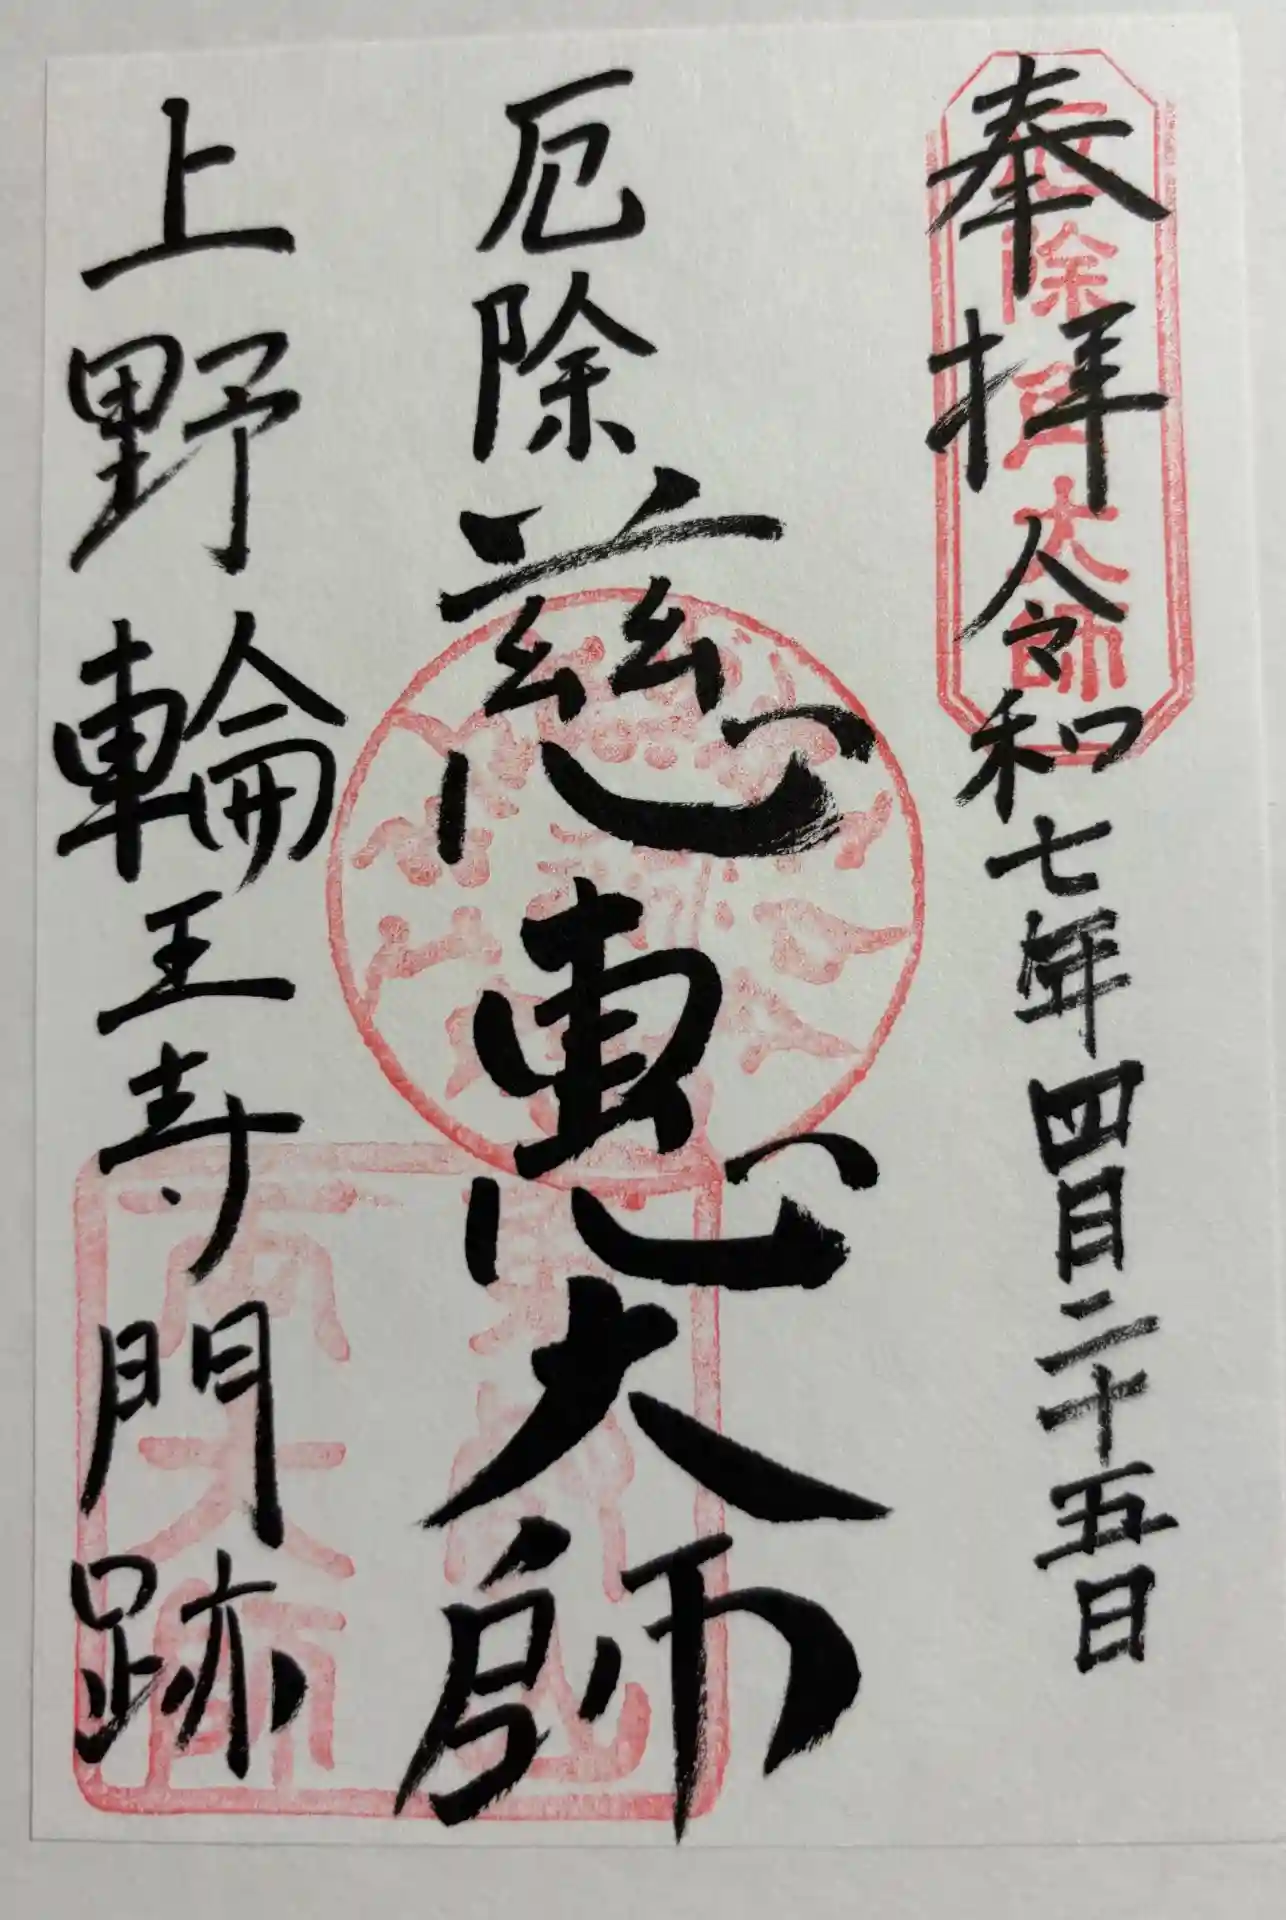 奉拝 令和七年四月二十五日
厄除 慈恵大師
上野輪王寺門跡
厄除角大師
両大師